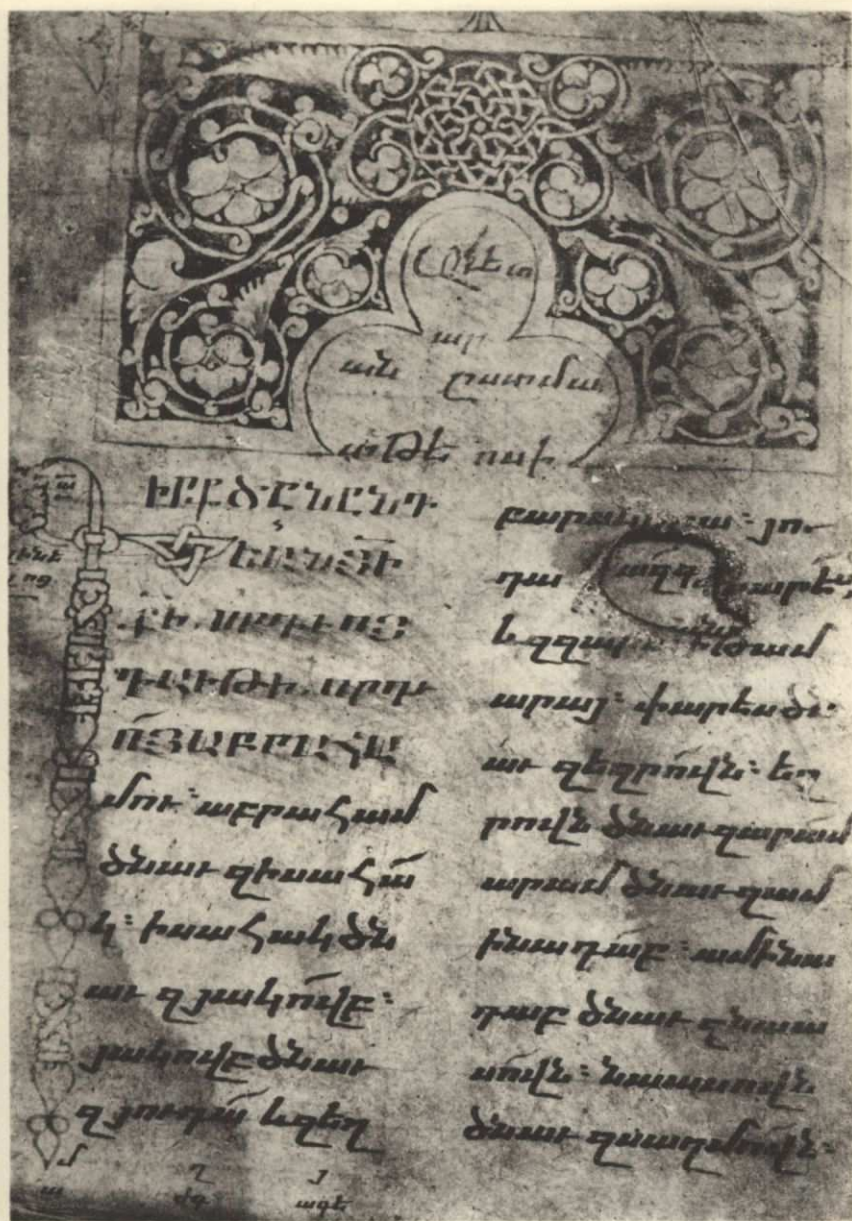 Աւետ
ար
ան ըստ մա
տթէ ոսի
ԻՐՔ ԾՆԸՆԴ
ԵԱՆ ՅԻ
ՔԻ. ՈՐԴՒՈՅ
ԴԱՒԹԻ. ՈՐԴԻ
ՈՅ ԱԲՐԱՀԱ
մու։ աբրահամ
ծնաւ զիսահա
կ։ իսահակ ծն
աւ զյակովբ։
յակովբ ծնաւ
զյուդա և զեղ
բարս նորա։ յու
դա զփարէս
և զզարա ի թամ
արայ։ փարես ծն
աւ զեզրովն։ եզ
րովն ծնաւ զարամ
արամ ծնաւ զամ
ինադաբ։ ամինա
դաբ ծնաւ զնաա
սովն։ նաասովն
ծնաւ զսաղմովն։